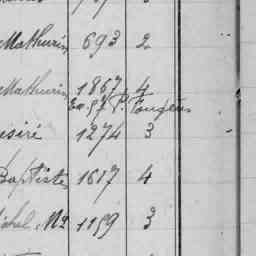 Mathurin 693 2
Mathurin 1867 4
Ex. 97 P. Fougeus
ésiré 1274 3
Baptiste 1617 4
ichel, Mn 1159 3